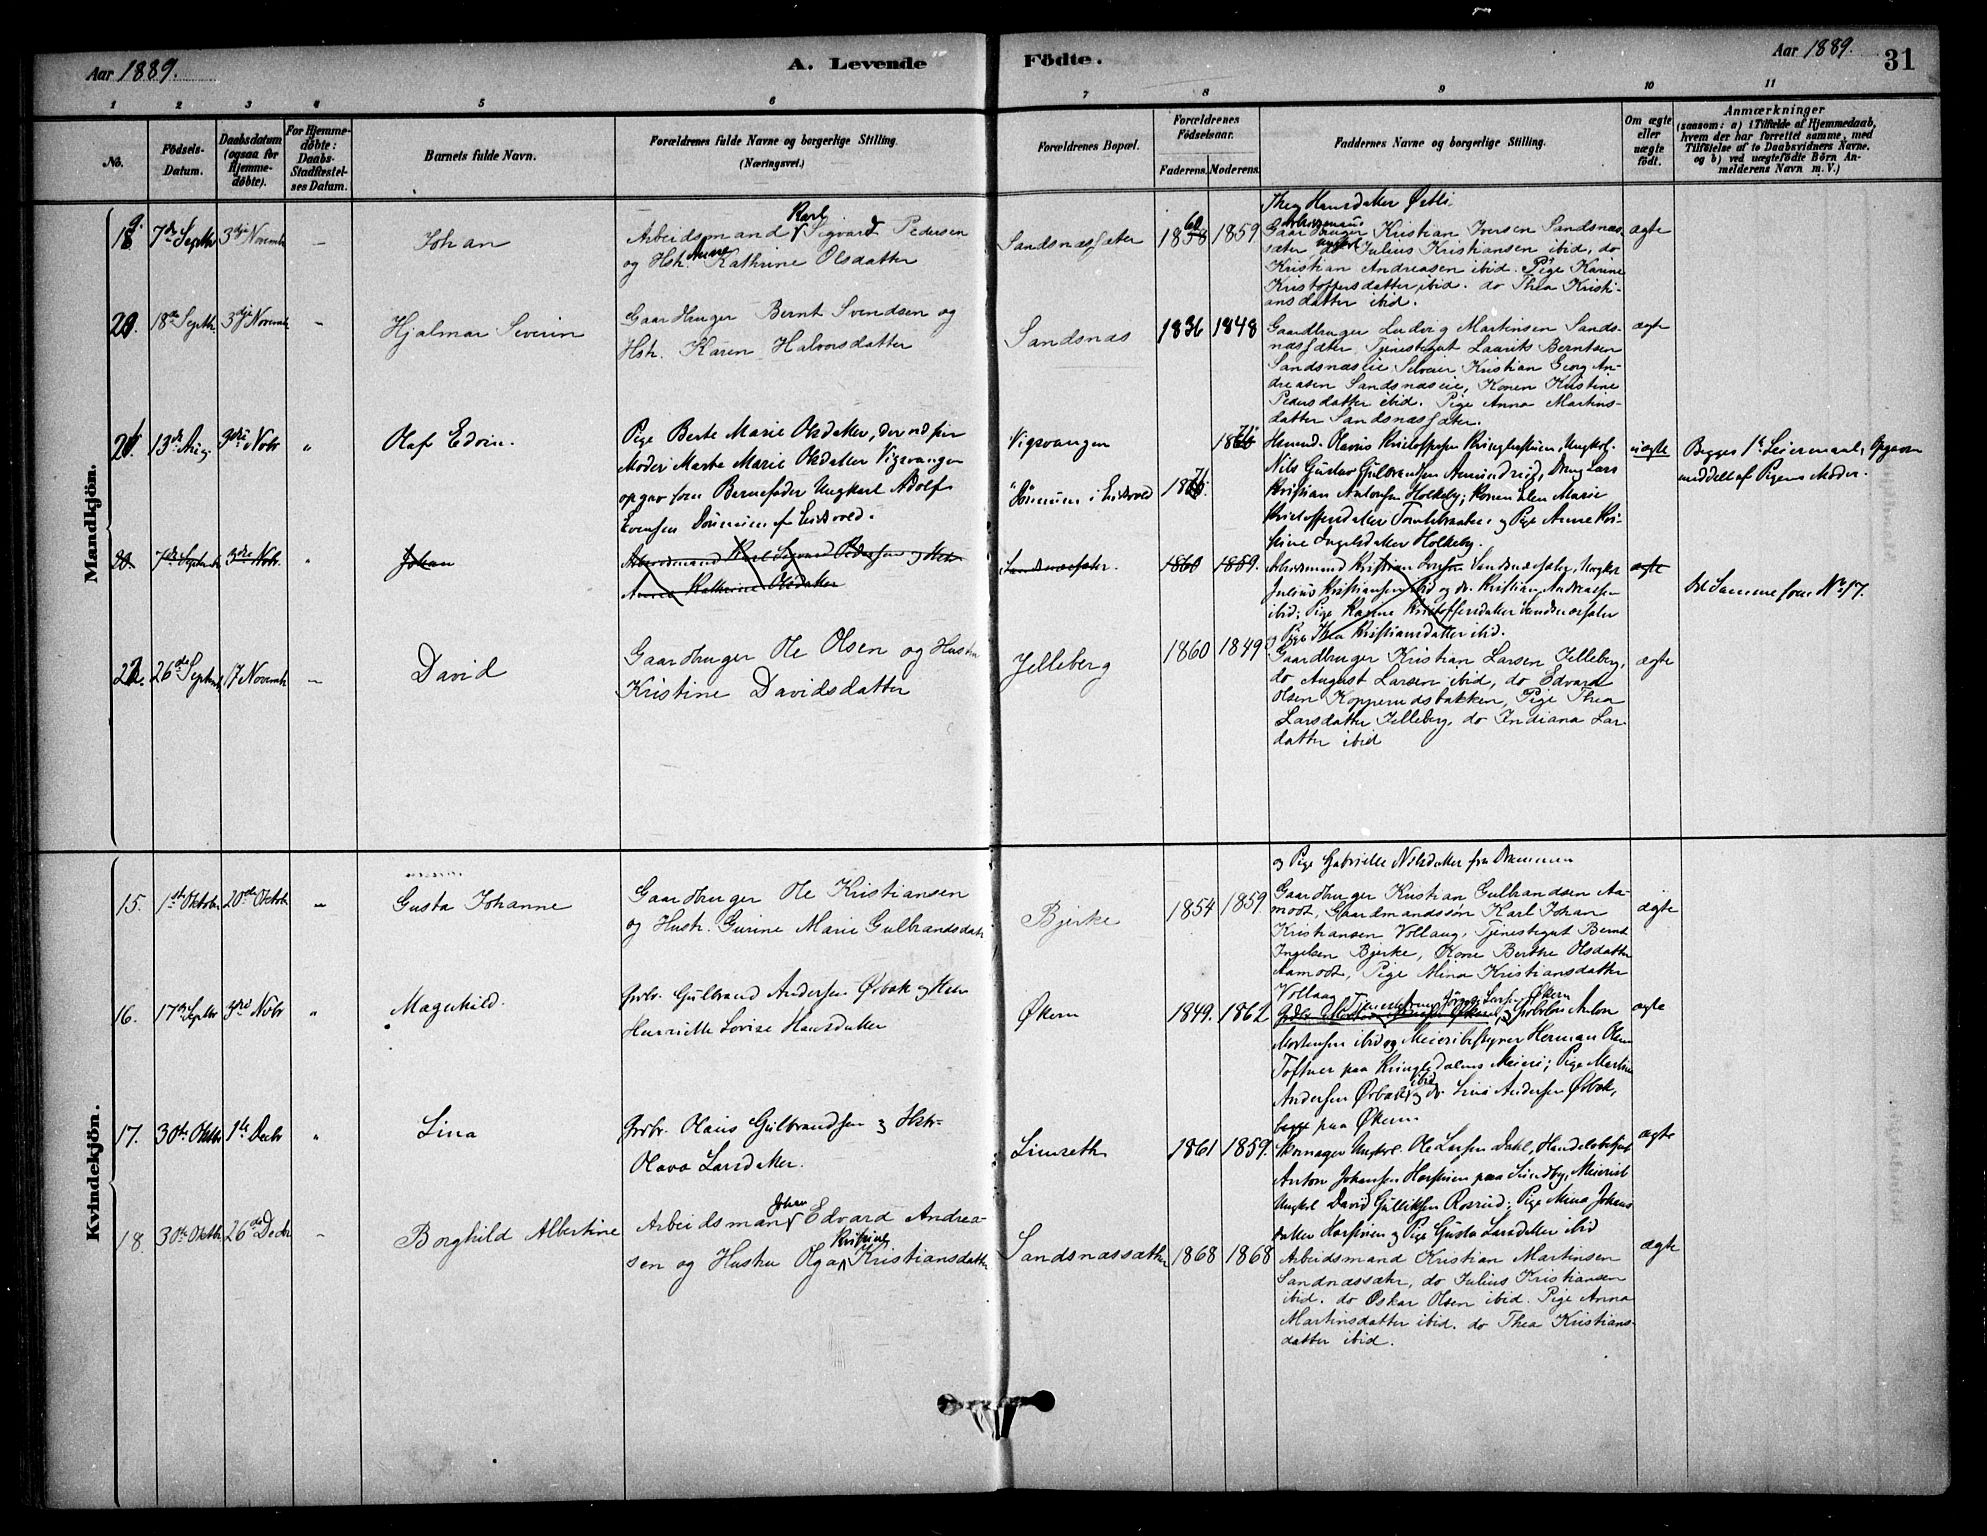 Aar 1889.
A. Levende
Födte.
Aar 1889.
31
1 2 3 4 5 6 7 8 9 10 11
No.
Födsels-
Datum.
Daabsdatum
(ogsaa for
Hjemme-
døbte).
For Hjemme-
døbte:
Daabs-
Stadfæstel-
ses Datum.
Barnets fulde Navn.
Forældrenes fulde Navne og borgerlige Stilling.
(Næringsvei.)
Forældrenes Bopæl.
Forældrenes
Födselsaar.
Faderens. Moderens.
Faddernes Navne og borgerlige Stilling.
Om ægte
eller
uægte
født.
Anmærkninger
(saasom: a) i Tilfælde af Hjemmedaab,
hvem der har forrettet samme, med
Tilföielse af to Daabsvidners Navne.
og b) ved uægtefödte Börn An-
melderens Navn m. V.)
Mandkjön.
19. 7de Septbr 3dje Novemb. –
Johan
Karl
Arbeidsmand Sigvard Pedersen
og Hstr. Anne Kathrine Olsdatter
Sandsnæssæter
1860 1859
Thea Hansdatter Østli.
Arbeidsmand
Kristian Iversen Sandsnæs-
sæter, do Julius Kristiansen ibid, do
Kristian Andreasen ibid. Pige Karine
Kristoffersdatter, ibid. do Thea Kristi-
ansdatter ibid.
ægte
20. 18de Septbr 3dje Novemb. –
Hjalmar Severin
Gaardbruger Bernt Svendsen og
Hstr. Karen Halvorsdatter
Sandsnæs
1836 1848
Gaardbruger Ludvig Martinsen Sands-
næssæter, Tjenestegut Laurits Berntsen
Sandsnæseie, Selveier Kristian Georg An-
dreasen Sandsnæseie, Konen Kristine
Pedersdatter ibid. Pige Anna Martins-
datter Sandsnæssæter.
ægte
21. 13de Aug. 3die Nobr "
Olaf Edvin.
Pige Berte Marie Olsdatter, der ved sin
Moder Marte Marie Olsdatter Vigsvangen
opgav som Barnefader Ungkarl Adolf
Evensen Dønnum af Eidsvold.
Vigsvangen
Dønnum i Eidsvold
1871
1871
Nils Gustav Gulbrandsen Amundrud, Dreng Lars
Kristian Antonsen Holkeby; Konen Elen Marie
Kristoffersdatter og Pige Anne Kri-
stine Ingelsdatter Holkeby.
uægte
Begges 1ste Leiermaal, Opgaven
meddelt af Pigens Moder.
20. 7de Septemb 3die Nobr. "
Johan
Arbeidsmand Karl Sigvard Pedersen og Hstr
Anne Kathrine Olsdatter
Sandsnæssæter.
1860 1859.
Arbeidsmand Kristian Iversen Sandsnæssæter, Ungkar
Julius Kristiansen ibid og do. Kristian Andreasen
ibid; Pige Karine Kristoffersdatter Sandsnæssæter
og Pige Thea Kristiansdatter ibid.
ægte
Det Samme som No. 17.
22. 26de Septemb 17 Novemb –
David
Gaardbruger Ole Olsen og Hustru
Kristine Davidsdatter
Jelleberg
1860 1849
Gaardbruger Kristian Larsen Jelleberg,
do August Larsen ibid, do Edvard
Olsen Kopperudsbakken, Pige Thea
Larsdatter Jelleberg, do Indiana Lar-
datter ibid
ægte
Kvindekjön.
15. 1ste Oktob. 20de Oktbr –
Gusta Johanne
Gaardbruger Ole Kristiansen
og Hustr. Gurine Marie Gulbrandsdatt
Bjerke
1854 1859
og Pige Gabrielle Nilsdatter fra Drammen
Gaardbruger Kristian Gulbrandsen Aa-
modt, Gaardmandssøn Karl Johan
Kristiansen Vollaug, Tjenestegut Bernt
Ingelsen Bjerke, Kone Berthe Olsdatter
Aamodt, Pige Mina Kristiansdatter
Vollaug
ægte
16. 17de Septbr 3die Nobr "
Magnhild.
Grbr. Gulbrand Andersen Ørbæk og Hstr
Henriette Lovise Hansdatter
Økern
1849. 1862
Larsen Økern
Anton
Mortensen ibid og Meieribestyrer Herman Olsen
Toftner paa Kringledalens Meieri; Pige Martine
Andersen Ørbæk ibid og do Lina Andersen Ørbæk,
begge paa Økern
ægte
17. 30te Oktbr 1ste Decbr "
Lina
Grbr. Olaus Gulbrandsen og Hstr.
Olava Larsdatter.
Limseth
1861 1859.
Skomager Ungkrl. Ole Larsen Dahl, Handelsbetjent
Anton Johansen Horstuen paa Sundby, Meierist
Ungkl David Gulliksen Rosrud; Pige Mina Johans
datter Horstuen og Pige Gusta Larsdatter ibid
ægte
18. 30te Oktbr 26de Decbr –
Borghild Albertine
Johan
Arbeidsmand Edvard Andrea-
Kristine
sen og Hustru Olga Kristiansdatter
Sandsnæssæter
1868 1868
Arbeidsmand Kristian Martinsen
Sandnæssæter, do Julius Kristiansen
ibid. do Oskar Olsen ibid. Pige Anna
Martinsdatter ibid. do Thea Kristians-
datter ibid.
ægte